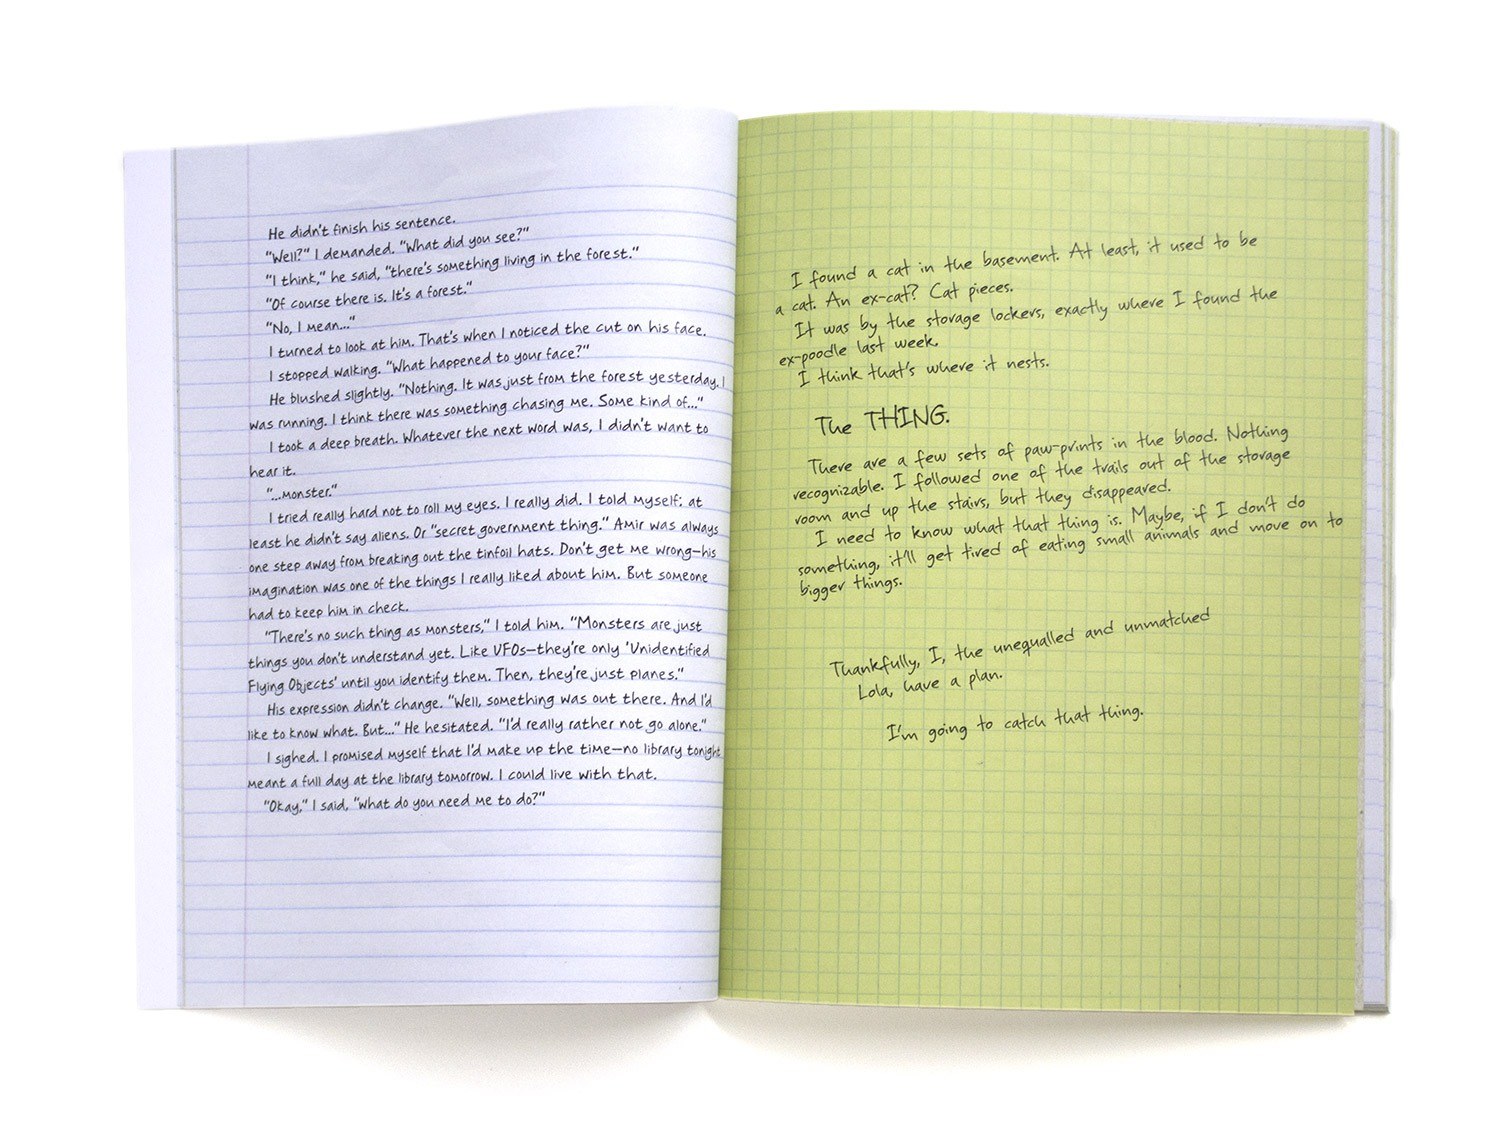 He didn't finish his sentence.
"Well?" I demanded. "What did you see?"
"I think," he said, "there's something living in the forest."
"Of course there is. It's a forest."
"No, I mean..."
I turned to look at him. That's when I noticed the cut on his face.
I stopped walking. "What happened to your face?"
He blushed slightly. "Nothing. It was just from the forest yesterday. I
was running. I think there was something chasing me. Some kind of..."
I took a deep breath. Whatever the next word was, I didn't want to
hear it.
"...monster."
I tried really hard not to roll my eyes. I really did. I told myself: at
least he didn't say aliens. Or "secret government thing." Amir was always
one step away from breaking out the tinfoil hats. Don't get me wrong—his
imagination was one of the things I really liked about him. But someone
had to keep him in check.
"There's no such thing as monsters," I told him. "Monsters are just
things you don't understand yet. Like UFOs—they're only 'Unidentified
Flying Objects' until you identify them. Then, they're just planes."
His expression didn't change. "Well, something was out there. And I'd
like to know what. But..." He hesitated. "I'd really rather not go alone."
I sighed. I promised myself that I'd make up the time—no library tonight
meant a full day at the library tomorrow. I could live with that.
"Okay," I said, "what do you need me to do?"
I found a cat in the basement. At least, it used to be
a cat. An ex-cat? Cat pieces.
It was by the storage lockers, exactly where I found the
ex-poodle last week.
I think that's where it nests.
The THING.
There are a few sets of paw-prints in the blood. Nothing
recognizable. I followed one of the trails out of the storage
room and up the stairs, but they disappeared.
I need to know what that thing is. Maybe, if I don't do
something, it'll get tired of eating small animals and move on to
bigger things.
Thankfully, I, the unequalled and unmatched
Lola, have a plan.
I'm going to catch that thing.